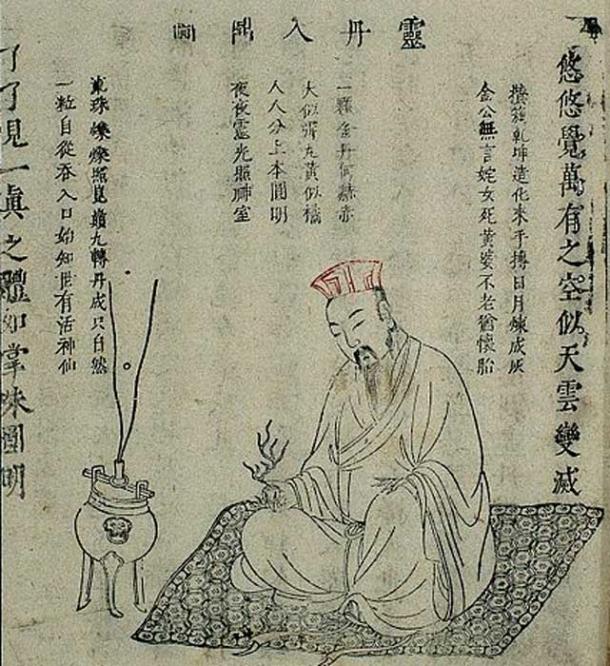 靈丹入鼎圖
悠悠覺萬有之空似天雲變滅
攢簇乾坤造化來手摶日月煉成灰
金公無言姹女死黃婆不老猶懷胎
一顆金丹何赫赤
大似彈丸黃似橘
人人分上本圓明
夜夜靈光照神室
黍珠爍爍照崑巔九轉丹成只自然
一粒自從吞入口始知世有活神仙
了了見一眞之體如掌珠圓明